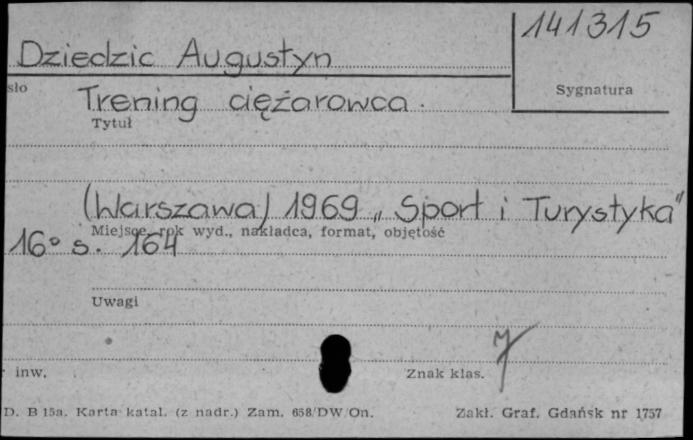 141315
Dziedzic Augustyn
Sygnatura
sło
Trening ciężarowca.
Tytuł
(Warszawa) 1969 „Sport i Turystyka"
Miejsce, rok wyd., nakładca, format, objętość
16° s. 164
Uwagi
inw.
Znak klas.
D. B 15a. Karta katal. (z nadr.) Zam. 658/DW/On. Zakł. Graf. Gdańsk nr 1757